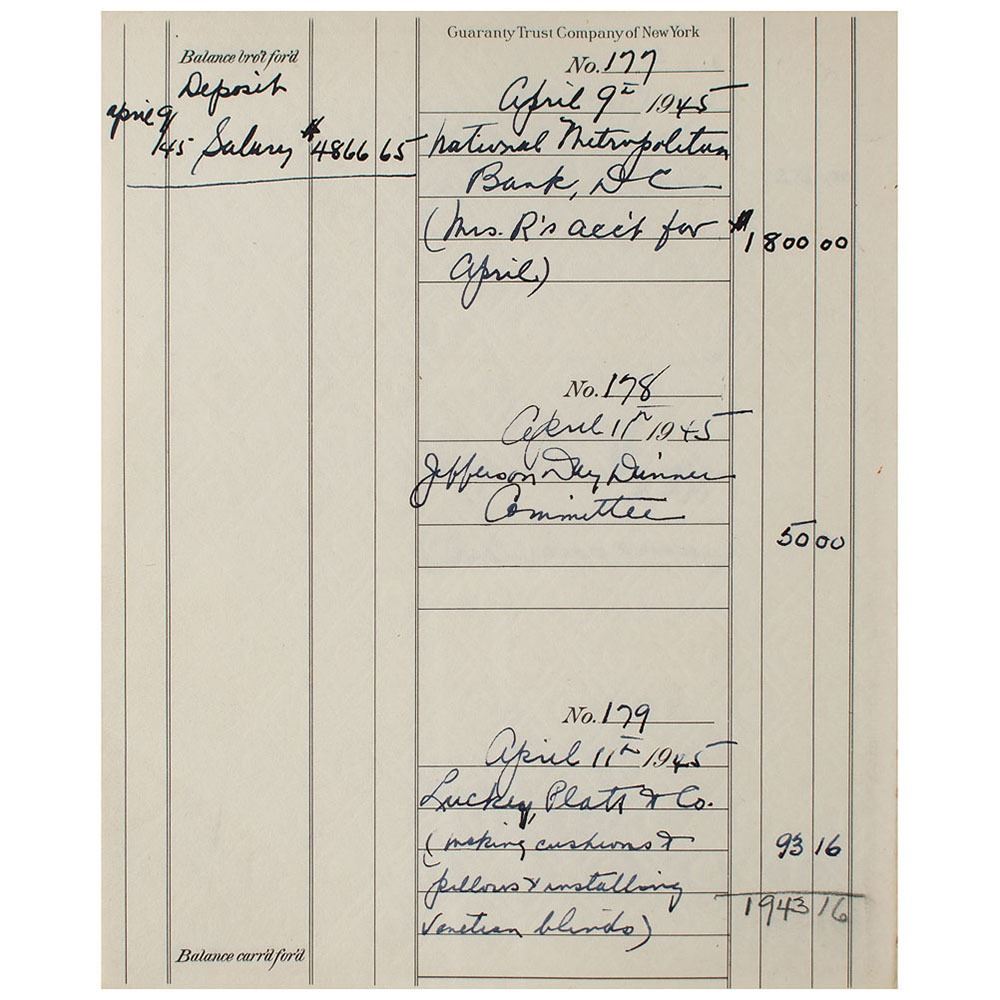 Guaranty Trust Company of New York
Balance bro't for'd
Deposit
april 9/
/45 Salary $4866 65
No. 177
April 9th 1945
National Metropolitan
Bank, DC
(Mrs. R's acc't for $1800 00
April)
No. 178
April 11th 1945
Jefferson Day Dinner
Committee
50 00
No. 179
April 11th 1945
Luckey, Platt & Co.
(making cushions & 93 16
pillows & installing
Venetian blinds) 1943 16
Balance carr'd for'd